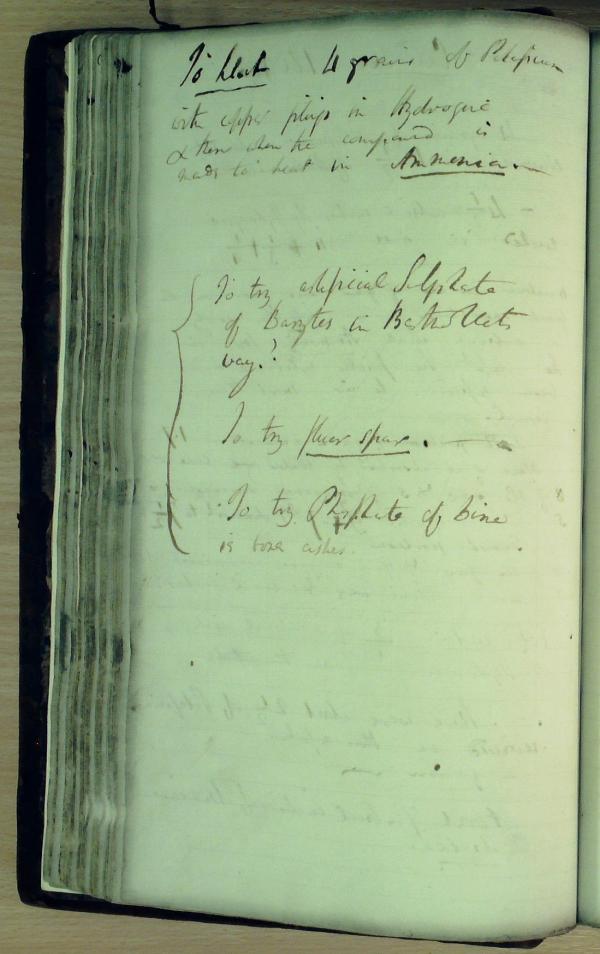 To heat 4 grains of Potassium
with copper filings in Hydrogene
& then when the compound is
made to heat in Ammonia. —
To try artificial Sulphate
of Barytes in Berthollets
way?
To try fluor spar. —
To try Phosphate of Lime
in bone ashes.